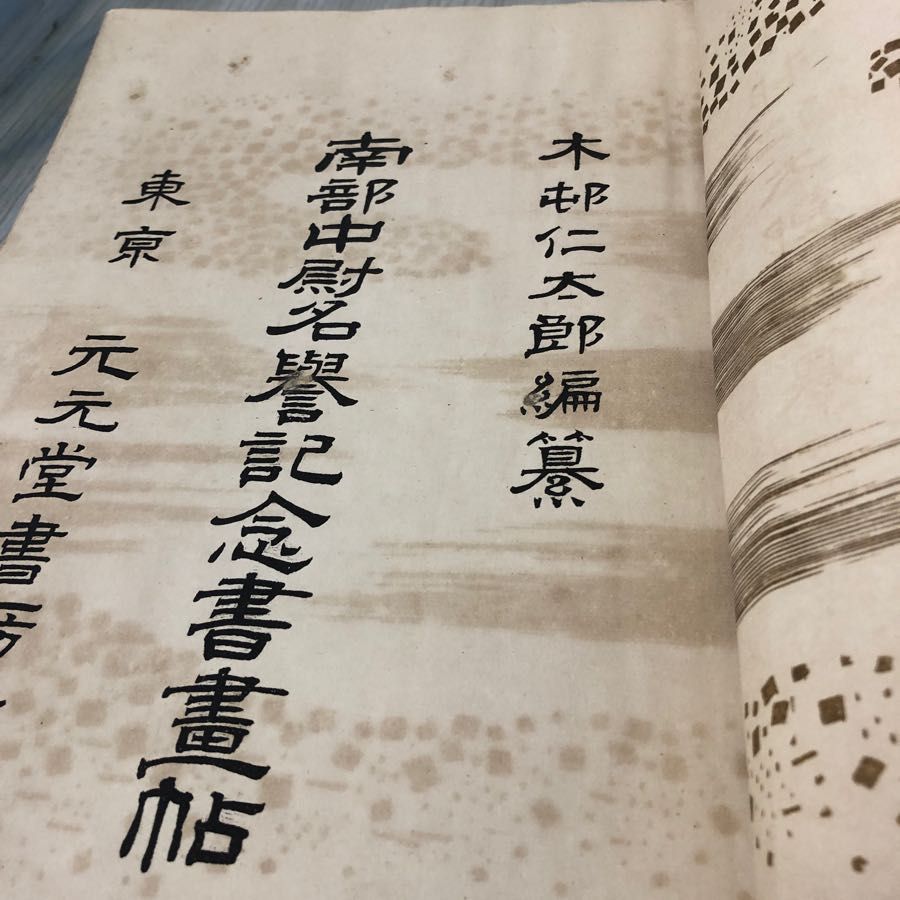 木邨仁太郎編纂
南部中尉名譽記念書畫帖
東京
元元堂書房